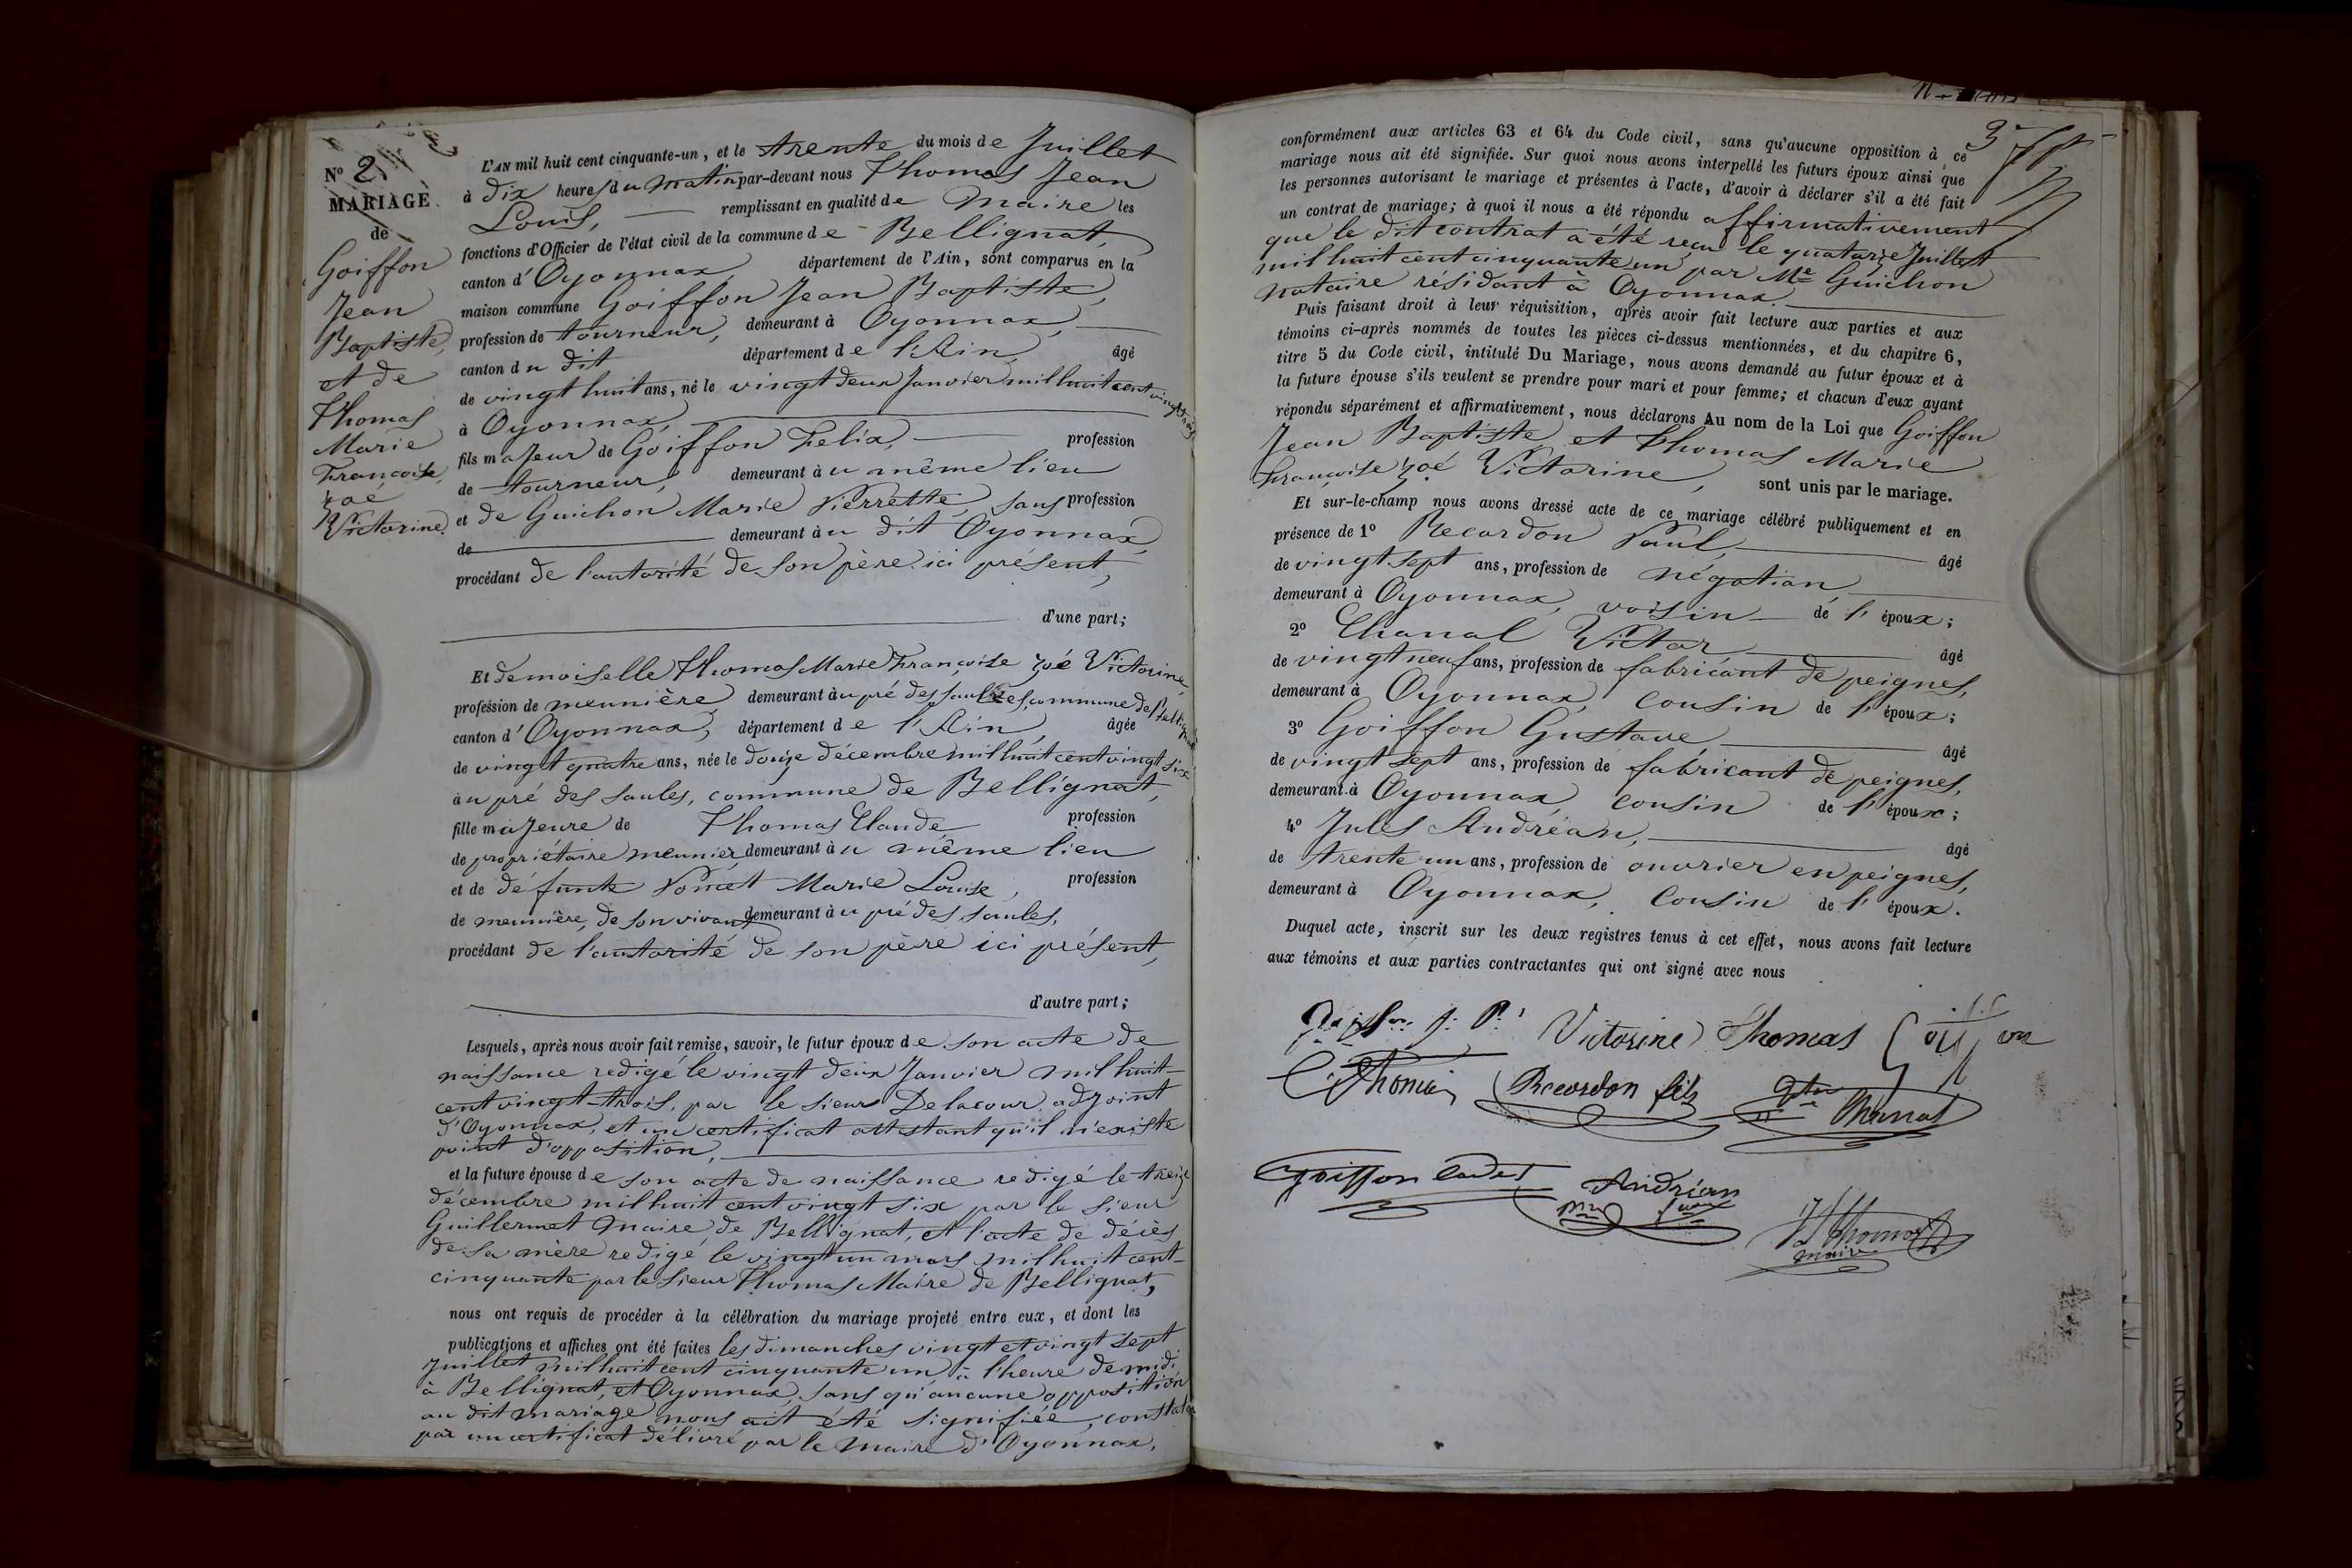 N° 2
MARIAGE
de
Goiffon
Jean
Baptiste,
et de
Thomas
Marie
Françoise,
Zoé
Victorine.
L'AN mil huit cent cinquante-un, et le trente du mois de Juillet
à dix heures du matin par-devant nous Thomas Jean
Louis, remplissant en qualité de Maire les
fonctions d'Officier de l'état civil de la commune de Bellignat,
canton d'Oyonnax, département de l'Ain, sont comparus en la
maison commune Goiffon Jean Baptiste,
profession de tourneur, demeurant à Oyonnax,
canton du dit département de l'Ain, âgé
de vingt huit ans, né le vingt deux Janvier mil huit cent vingt trois
à Oyonnax,
fils majeur de Goiffon Felix, profession
de tourneur, demeurant au même lieu
et de Guichon Marie Pierrette, sans profession
de demeurant au dit Oyonnax,
procédant de l'autorité de son père ici présent,
d'une part;
Et demoiselle Thomas Marie Françoise Zoé Victorine,
profession de meunière demeurant au pré des saules, commune de Bellignat
canton d'Oyonnax, département de l'Ain, âgée
de vingt quatre ans, née le douze décembre mil huit cent vingt six
au pré des saules, commune de Bellignat,
fille majeure de Thomas Claude profession
de propriétaire meunier demeurant au même lieu
et de défunte Poncet Marie Louise, profession
de meunière, de son vivant demeurant au pré des saules,
procédant de l'autorité de son père ici présent,
d'autre part;
Lesquels, après nous avoir fait remise, savoir, le futur époux de son acte de
naissance redigé le vingt deux Janvier mil huit-
cent vingt-trois, par le sieur Delacour adjoint
d'Oyonnax, et un certificat attestant qu'il n'existe
point d'opposition,
et la future épouse de son acte de naissance redigé le treize
décembre mil huit cent vingt six par le sieur
Guillermet Maire de Bellignat, et l'acte de décès
de sa mère redigé le vingt un mars mil huit cent-
cinquante par le sieur Thomas Maire de Bellignat,
nous ont requis de procéder à la célébration du mariage projeté entre eux, et dont les
publications et affiches ont été faites les dimanches vingt et vingt sept
Juillet mil huit cent cinquante un à l'heure de midi
à Bellignat, et Oyonnax, sans qu'aucune opposition
au dit mariage nous ait été signifiée, constaté
par un certificat délivré par le Maire d'Oyonnax,
3
conformément aux articles 63 et 64 du Code civil, sans qu'aucune opposition à ce
mariage nous ait été signifiée. Sur quoi nous avons interpellé les futurs époux ainsi que
les personnes autorisant le mariage et présentes à l'acte, d'avoir à déclarer s'il a été fait
un contrat de mariage; à quoi il nous a été répondu affirmativement
que le dit contrat a été reçu le quatorze Juillet
mil huit cent cinquante un par Me Guichon
notaire résidant à Oyonnax.
Puis faisant droit à leur réquisition, après avoir fait lecture aux parties et aux
témoins ci-après nommés de toutes les pièces ci-dessus mentionnées, et du chapitre 6,
titre 5 du Code civil, intitulé Du Mariage, nous avons demandé au futur époux et à
la future épouse s'ils veulent se prendre pour mari et pour femme; et chacun d'eux ayant
répondu séparément et affirmativement, nous déclarons Au nom de la Loi que Goiffon
Jean Baptiste et Thomas Marie
Françoise Zoé Victorine, sont unis par le mariage.
Et sur-le-champ nous avons dressé acte de ce mariage célébré publiquement et en
présence de 1° Recordon Paul, âgé
de vingt sept ans, profession de négotian,
demeurant à Oyonnax, voisin de l'époux;
2° Chanal Victor âgé
de vingt neuf ans, profession de fabricant de peignes,
demeurant à Oyonnax, cousin de l'époux;
3° Goiffon Gustave âgé
de vingt sept ans, profession de fabricant de peignes,
demeurant à Oyonnax, cousin de l'époux;
4° Jules Andréan, âgé
de trente un ans, profession de ouvrier en peignes,
demeurant à Oyonnax, Cousin de l'époux.
Duquel acte, inscrit sur les deux registres tenus à cet effet, nous avons fait lecture
aux témoins et aux parties contractantes qui ont signé avec nous
Victorine Thomas Goiffon
Thomas Recordon fils Chanal
Goiffon Cadet Andréan
Thomas
maire